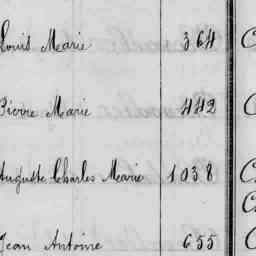 Louis Marie 364
Pierre Marie 442
Auguste Charles Marie 1038
Jean Antoine 655